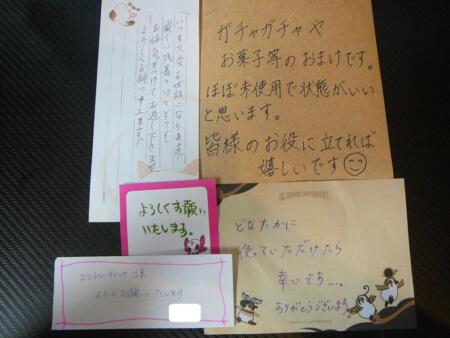 いつも大変お世話になります。
厳しい残暑の日々どうぞ
お体気をつけてお過し下さいませ。
よろしくお願い申し上げます。
ガチャガチャや
お菓子等のおまけです。
ほぼ未使用で状態がいい
と思います。
皆様のお役に立てれば
嬉しいです
よろしくお願い
いたします。
エコトレーディング様
よろしくお願いいたします
どなたかに
使っていただけたら
幸いです…。
ありがとうございます